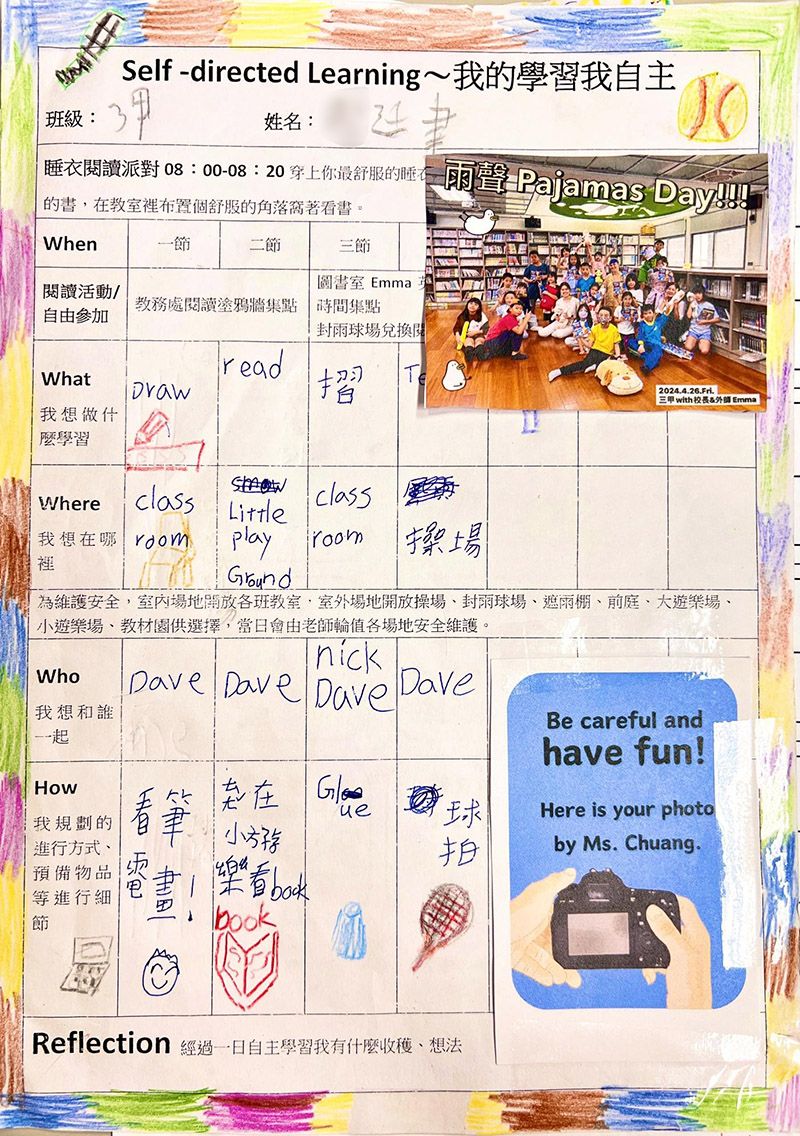 Self -directed Learning～我的學習我自主
班級： 3甲 姓名：
睡衣閱讀派對 08：00-08：20 穿上你最舒服的睡衣
的書，在教室裡布置個舒服的角落窩著看書。
雨聲 Pajamas Day!!!
2024.4.26.Fri.
三甲 with 校長&外師 Emma
When 一節 二節 三節
閱讀活動/
自由參加
教務處閱讀塗鴉牆集點
圖書室 Emma
時間集點
封雨球場兌換
What
我想做什
麼學習
Draw
read
摺
Te
Where
我想在哪
裡
class
room
Little
play
Ground
class
room
操場
為維護安全，室內場地開放各班教室，室外場地開放操場、封雨球場、遮雨棚、前庭、大遊樂場、
小遊樂場、教材園供選擇，當日會由老師輪值各場地安全維護。
Who
我想和誰
一起
Dave
Dave
nick
Dave
Dave
How
我規劃的
進行方式、
預備物品
等進行細
節
看筆
電畫!
在
小
樂看book
book
Glue
球
拍
Be careful and
have fun!
Here is your photo
by Ms. Chuang.
Reflection 經過一日自主學習我有什麼收穫、想法